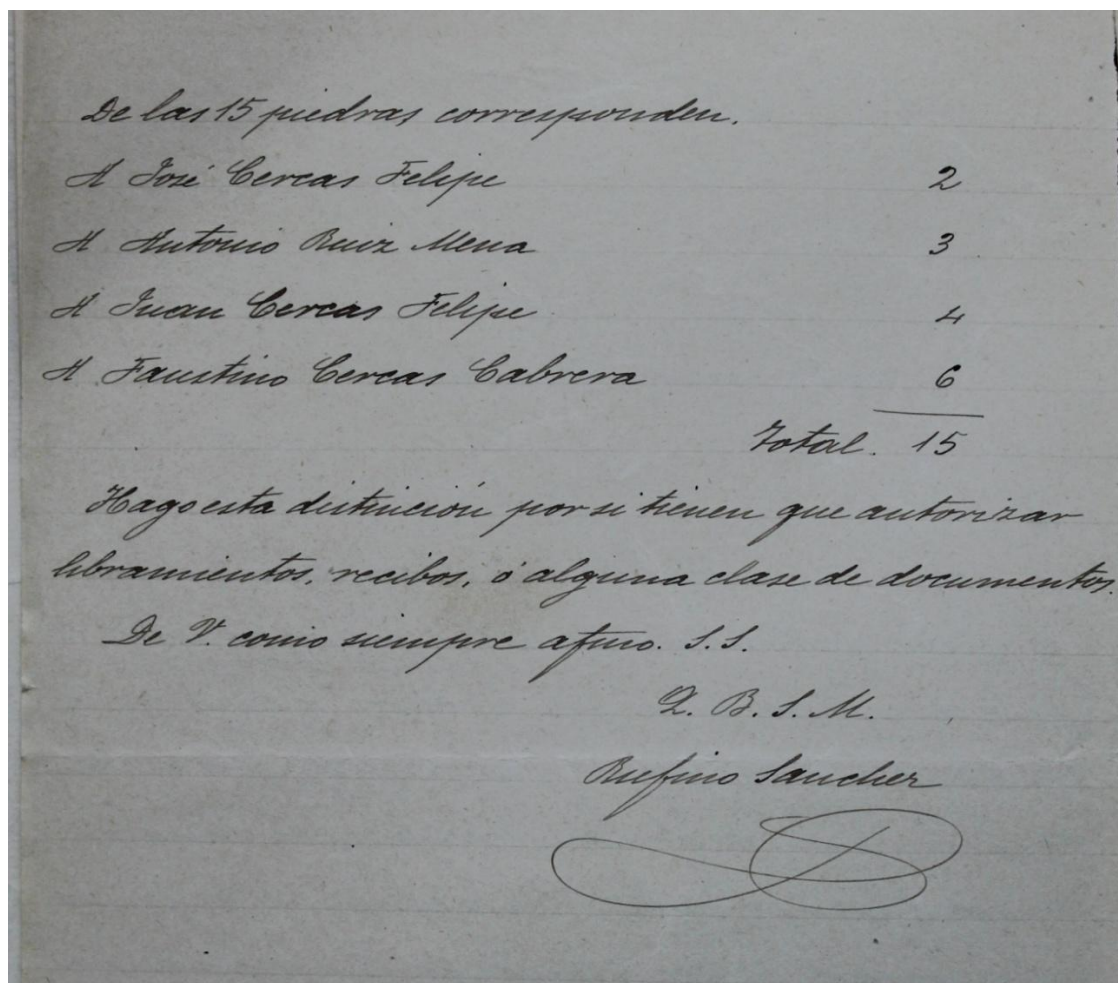 De las 15 piedras corresponden.
A José Cercas Felipe 2
A Antonio Ruiz Mena 3
A Juan Cercas Felipe 4
A Faustino Cercas Cabrera 6
Total. 15
Hago esta distinción por si tienen que autorizar
libramientos, recibos, ó alguna clase de documentos.
De V. como siempre afmo. S.S.
Q. B. S. M.
Rufino Sanchez